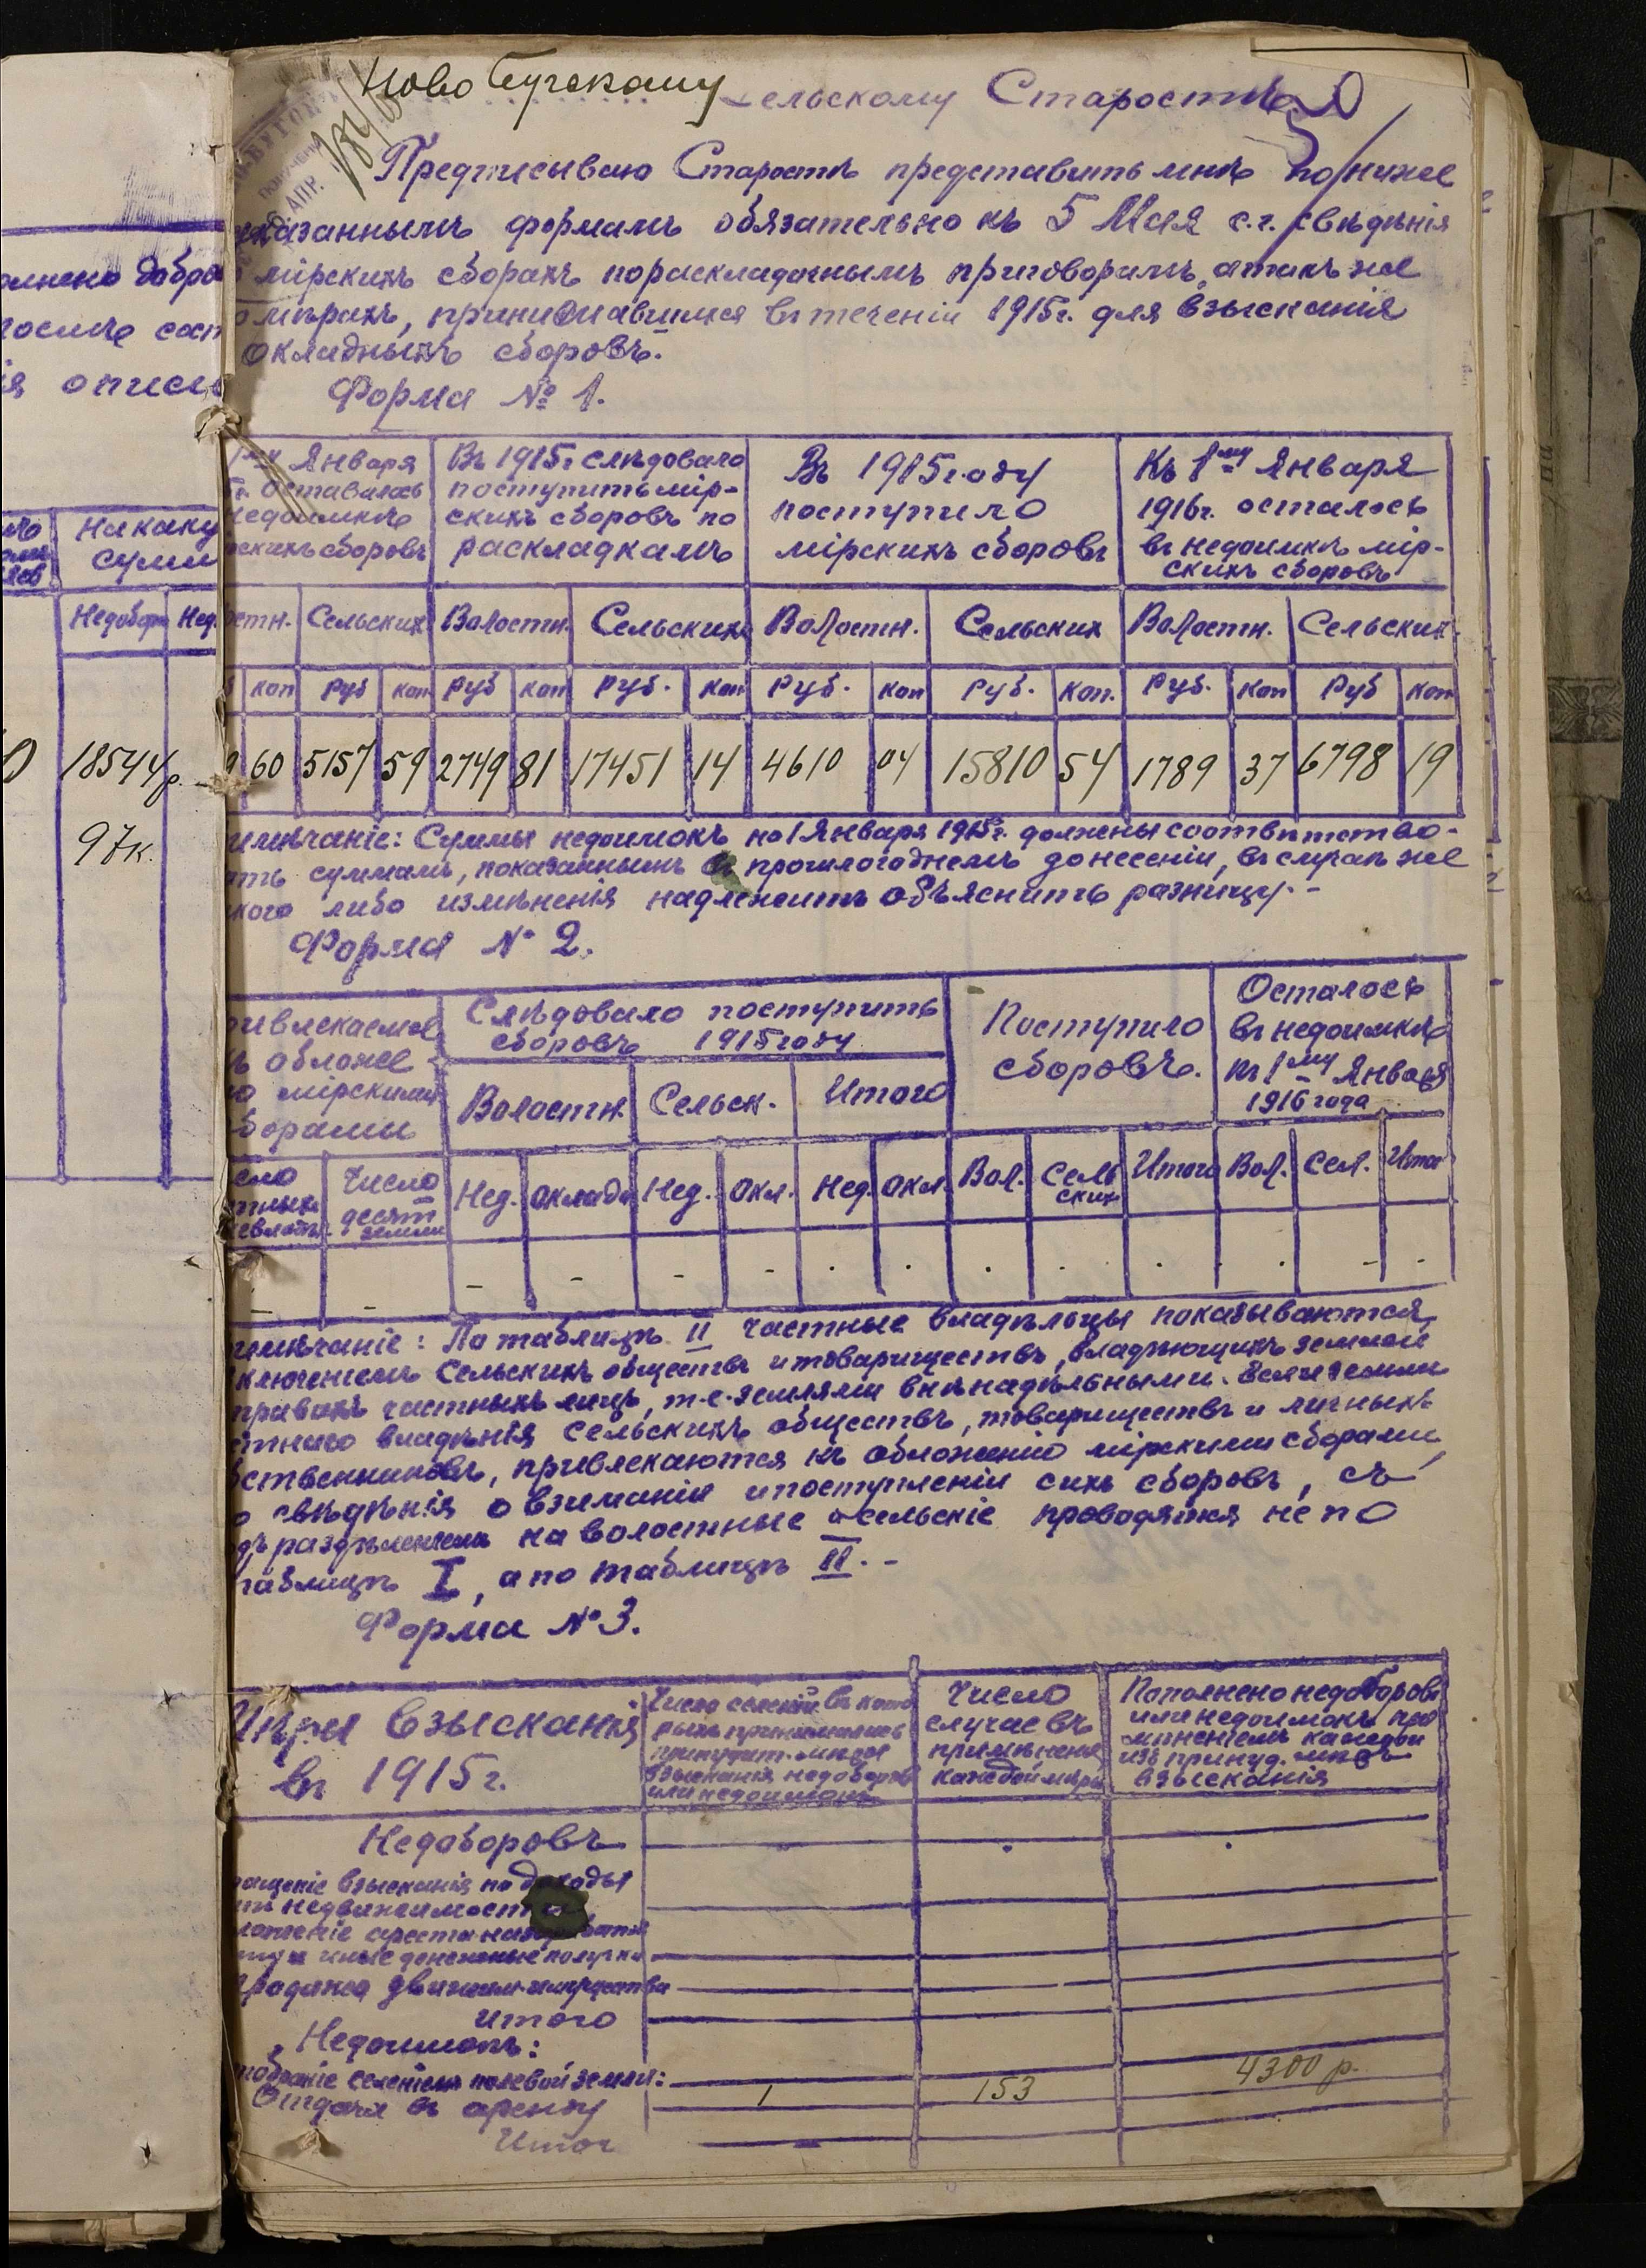 Ново Бугскому Сельскому Старостѣ
АПР.
Предписываю Старостѣ представить мнѣ по ниже
указаннымъ формамъ обязательно къ 5 Мая с.г. свѣдѣнія
о мірскихъ сборахъ по раскладочнымъ приговорамъ, а такъ же
о мѣрахъ, принимавшихся въ теченіи 1915г. для взысканія
окладныхъ сборовъ.
Форма № 1.
1му Января
оставалось
недоимкѣ
скихъ сборовъ
Въ 1915г слѣдовало
поступить мір-
скихъ сборовъ по
раскладкамъ
Въ 1915 году
поступило
мірскихъ сборовъ
Къ 1му Января
1916г. осталось
въ недоимкѣ мір-
скихъ сборовъ
остн. Сельскихъ Волостн. Сельскихъ Волостн. Сельскихъ Волостн. Сельскихъ
коп руб коп руб коп руб. коп руб. коп руб. коп. руб. коп руб коп
9 60 5157 59 2749 81 17451 14 4610 04 15810 54 1789 37 6798 19
имѣчаніе: Суммы недоимокъ на 1 Января 1915г. должны соотвѣтство-
ать суммамъ, показаннымъ въ прошлогоднемъ донесеніи, въ случаѣ же
кого либо измѣненія надлежитъ объяснить разницу. -
Форма № 2.
ривлекаемые
ъ обложе
ю мірскими
борами
Слѣдовало поступить
сборовъ 1915 году
Волостн. Сельск. Итого
Поступило
сборовъ.
Осталось
въ недоимкѣ
къ 1му Января
1916 года
Число
десят
земли
Нед. оклада Нед. окл. Нед. окл. Вол. Сель
скихъ Итого Вол. Сел. Итог
имѣчаніе: По таблицѣ II частные владѣльцы показываются,
ключеніемъ Сельскихъ обществъ и товариществъ, владѣющихъ землей
правахъ частныхъ лицъ, т.е. землями внѣнадѣльными. Если земли
стнаго владѣнія Сельскихъ обществъ, товариществъ и личныхъ
бственниковъ, привлекаются къ обложенію мірскими сборами,
о свѣдѣнія о взиманіи и поступленіи сихъ сборовъ, съ
дъ раздѣленіемъ на волостные и сельскіе проводятся не по
таблицѣ I, а по таблицѣ II. -
Форма № 3.
Мѣры взысканія
въ 1915г.
Число селеній въ кото
рыхъ принимались
принудит. мѣры
взысканія недоборовъ
или недоимокъ
Число
случаевъ
примѣненія
каждой мѣры
Пополнено недоборовъ
или недоимокъ при
мѣненіемъ каждой
изъ принуд. мѣръ
взысканія
Недоборовъ
ращеніе взысканія на доходы
недвижимост
ложеніе ареста на
и иные денежные получ
продажа движим. имущества
Итого
Недоимокъ:
тобраніе селеніемъ полевой земли:
Отдача въ аренду 1 153 4300 р.
Итог
олнено добро
послѣ сост
ія описи
На каку
сумм
Недобор Нед.
18544р.
97к.